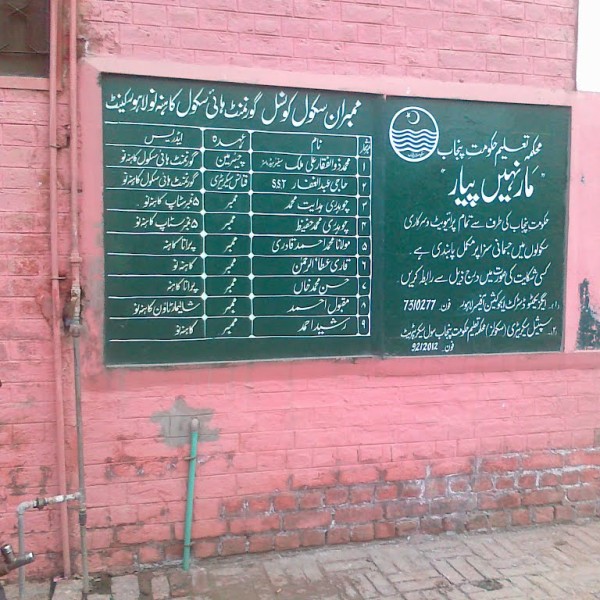 ممبران سکول کونسل گورنمنٹ ہائی سکول کاہنہ نو لاہور کینٹ
نمبر شمار نام عہدہ ایڈریس
1 محمد ذوالفقار علی ملک سینئر ہیڈ ماسٹر چیئرمین گورنمنٹ ہائی سکول کاہنہ نو
۲ حاجی عبدالغفار S.S.T سیکرٹری گورنمنٹ ہائی سکول کاہنہ نو
۳ چوہدری ہدایت محمد ممبر ۵ فیئر سٹاپ کاہنہ نو
۴ چوہدری محمد حفیظ ممبر ۵ فیئر سٹاپ کاہنہ نو
۵ مولانا محمد احمد قادری ممبر پرانا کاہنہ
۶ قاری عطا الرحمن ممبر کاہنہ نو
۷ حسن محمد خاں ممبر پرانا کاہنہ
۸ مقبول احمد ممبر شالیمار ٹاؤن کاہنہ نو
۹ رشید احمد ممبر کاہنہ نو
محکمہ تعلیم حکومت پنجاب
"مار نہیں پیار"
حکومت پنجاب کی طرف سے تمام پرائیویٹ و سرکاری
سکولوں میں جسمانی سزا پر مکمل پابندی ہے۔
کسی شکایت کی صورت میں درج ذیل سے رابطہ کریں۔
۱۔ ایگزیکٹو ڈسٹرکٹ ایجوکیشن آفیسر لاہور فون 7510277
۲۔ سپیشل سیکرٹری (سکولز) محکمہ تعلیم حکومت پنجاب سول سیکرٹریٹ
فون 9212012